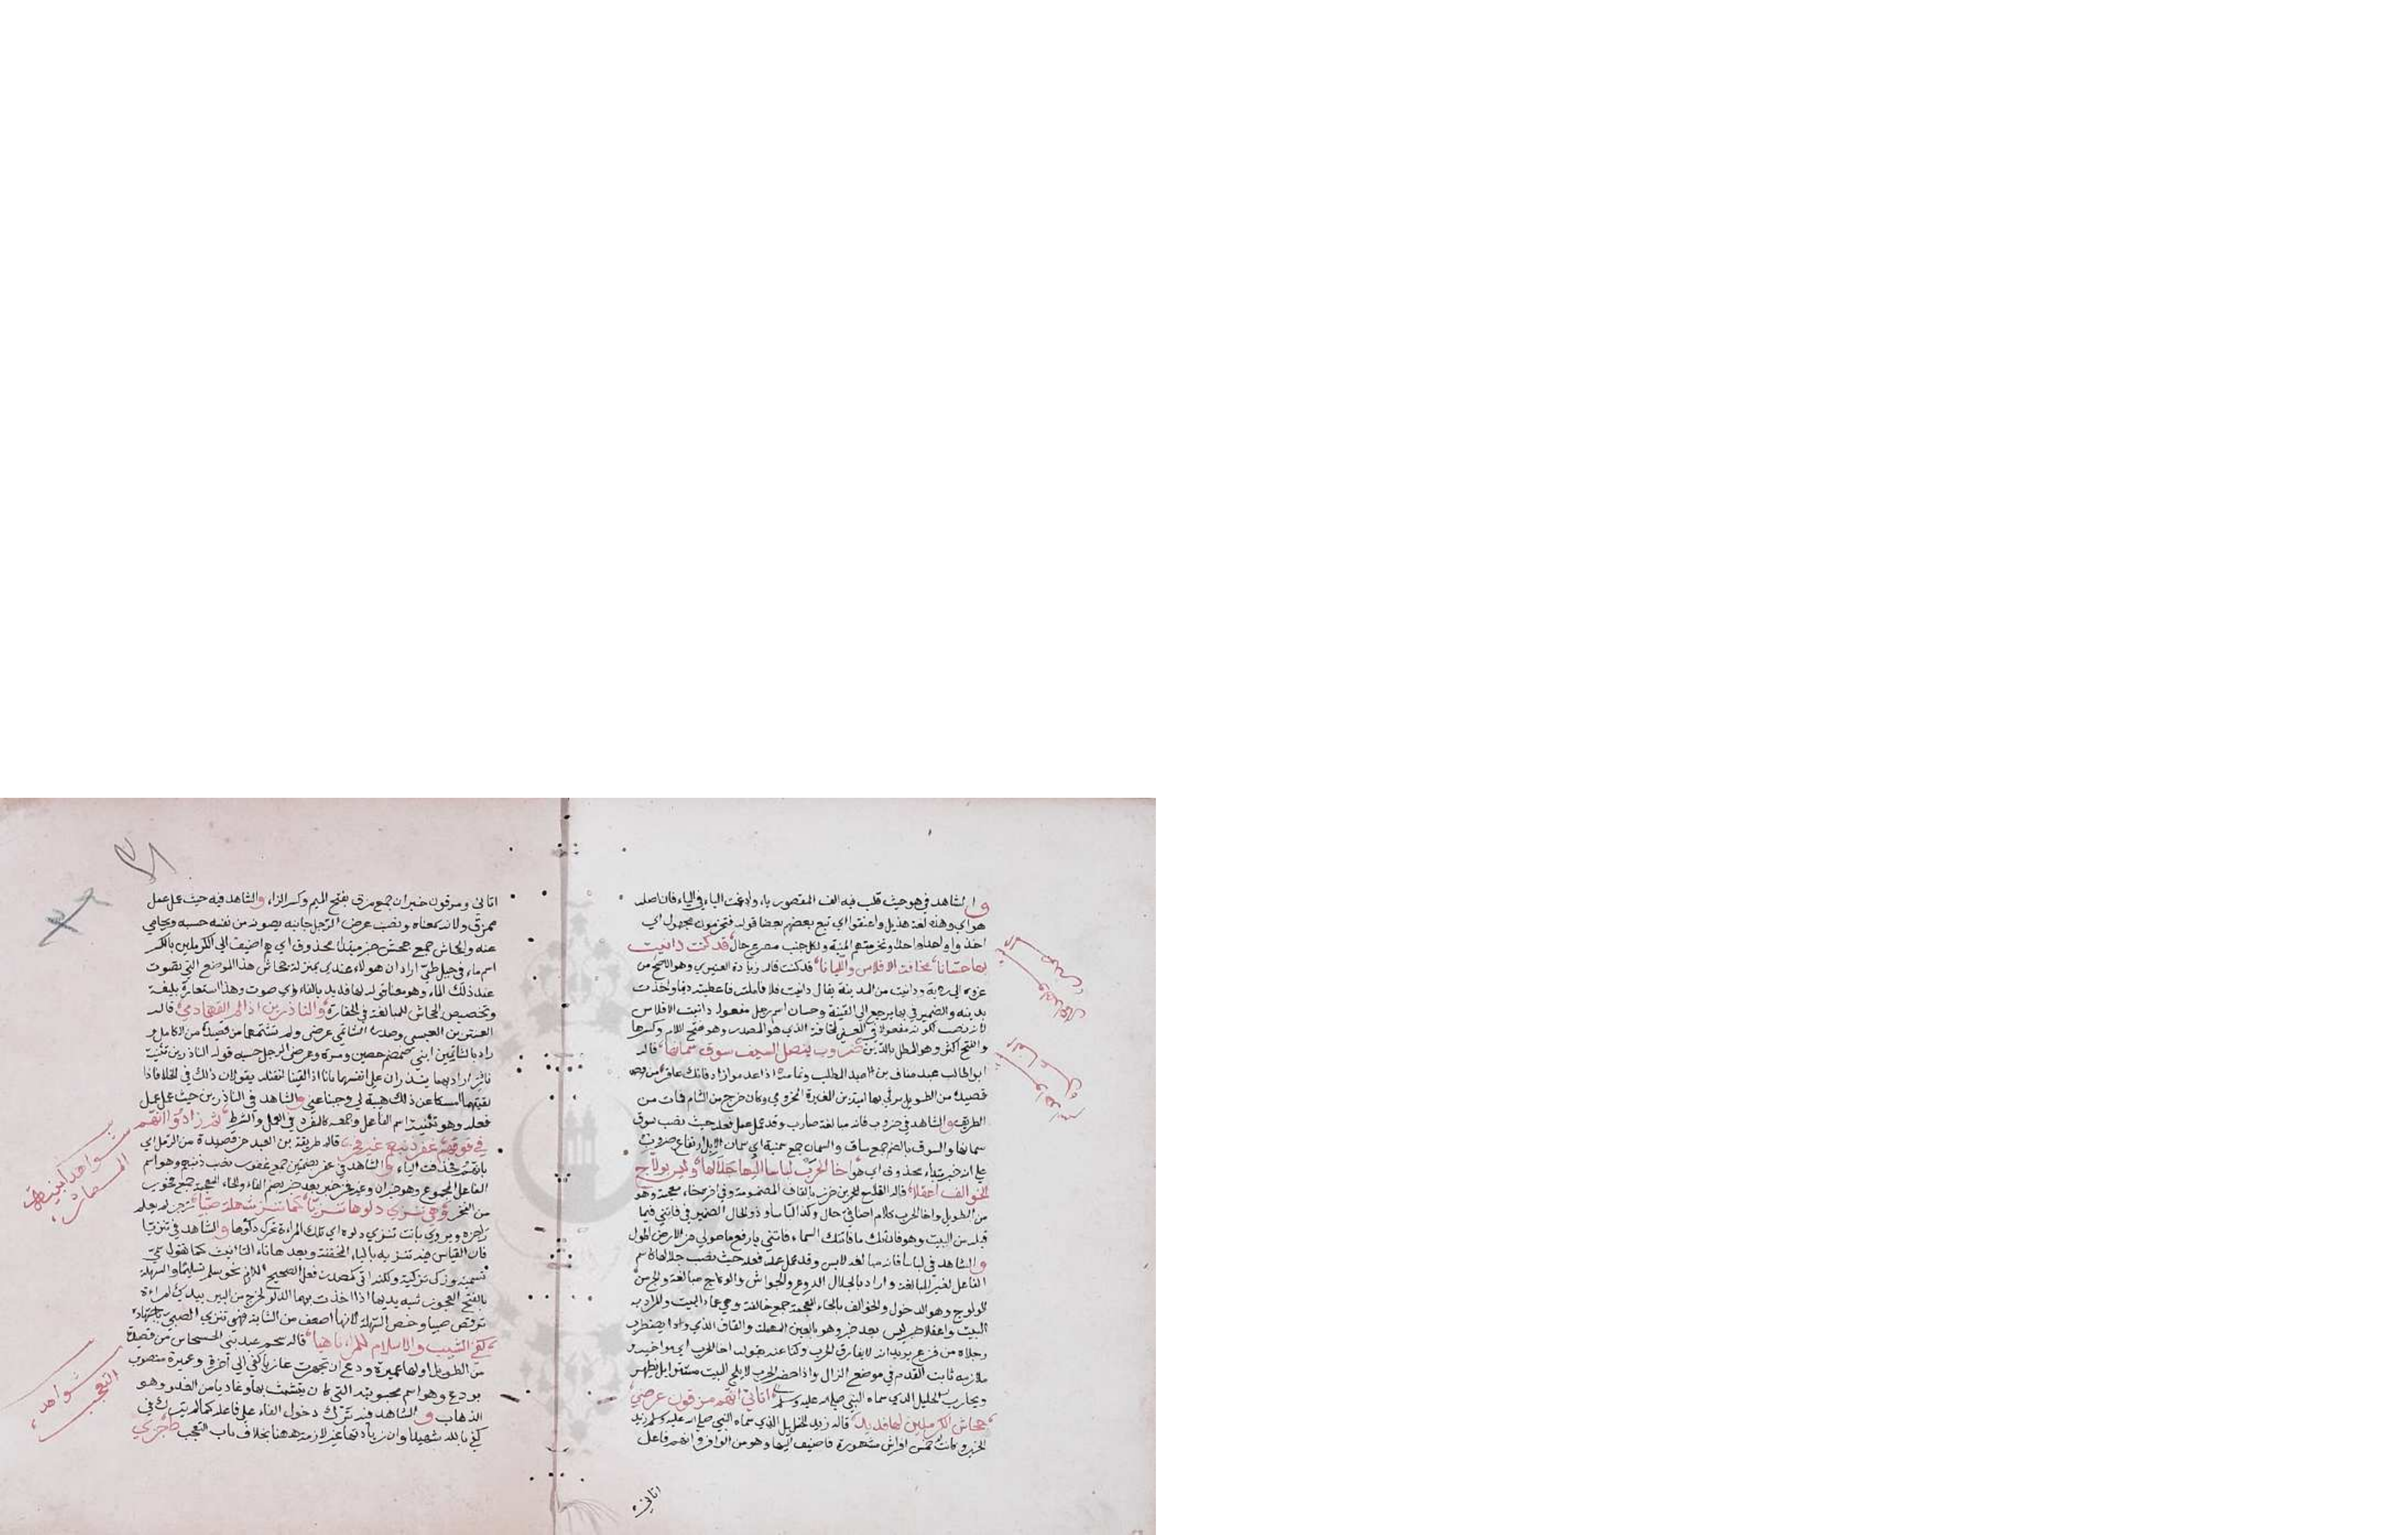 والشاهد في هو حيث قلب فيه الف المقصور ياء وادغمت الياء في الياء فان اصله
هواي وهذه لغة هذيل واعنقوا اي تبع بعضهم بعضا قوله فتخرموا مجهول اي
اخذوا واحدا واحدا وتخرمتهم المنية ولكل جنب مصرع حال قد كنت داينت
بها حسانا مخافة الافلاس والليانا قد كنت قاله زيادة العنبري وهو الاصح من
عزوه الى رؤبة وداينت من المداينة يقال داينت فلانا عاملته فاعطيته دينا واخذت
بدينه والضمير في بها يرجع الى القينة وحسان اسم رجل مفعول داينت الافلاس
لانه نصب لكونه مفعولا في المعنى لمخافة الذي هو المصدر وهو بفتح اللام وكسرها
والفتح اكثر وهو المطل بالدين ضروب بنصل السيف سوق سمانها قاله
ابو طالب عبد مناف بن عبد المطلب وتمامه اذا عدموا زادا فانك عاقر من
قصيدة من الطويل يرثي بها امية بن المغيرة المخزومي وكان خرج من الشام فمات من
الطريق والشاهد في ضروب فانه مبالغة ضارب وقد عمل عمل فعله حيث نصب سوق
سمانها والسوق بالضم جمع ساق والسمان جمع سمينة اي سمان الابل ارتفاع ضروب
على انه خبر مبتداء محذوف اي هو اخا الحرب لباسا اليها جلالها وليس بولاج
الخوالف اعقلا قاله القلاخ بن حزن بالقاف المضمومة وفي اخره خاء معجمة وهو
من الطويل واخا الحرب كلام اضافي حال وكذا لباسا وذو الحال الضمير في فانني فيما
قبله من البيت وهو فان تك فاتتك السماء فانني بارفع ما حولي من الارض اطول
والشاهد في لباسا فانه مبالغة لابس وقد عمل عمل فعله حيث نصب جلالها اسم
الفاعل لغير المبالغة واراد بالجلال الدروع والجواش والولاج مبالغة والج من
الولوج وهو الدخول والخوالف بالخاء المعجمة جمع خالفة وهي عماد البيت والمراد به
البيت واعقلا خبر ليس بعد خبر وهو بالعين المهملة والقاف الذي
رجلاه من فزع يريد انه لا يفارق الحرب وكنا عنه بقوله اخا الحرب اي مواخيه و
ملازمه ثابت القدم في موضع الزال واذا حضر الحرب لا يلج البيت مستترا بل يظهر
ويحارب اتاني انهم مزقون عرضي
جحاش الكرملين لها فديد قاله زيد الخليل الذي سماه النبي صلى الله عليه وسلم زيد
الخير وكانت له خمس افراس مشهورة فاضيف اليها وهو من الوافر وانهم فاعل
اتاني
شواهد
شواهد
اتاني ومزقون خبر ان جمع مزق بفتح الميم وكسر الزاء والشاهد فيه حيث عمل عمل
ممزق ولانه بمعناه ونصب عرضي عرض الرجل جانبه يصونه من نفسه حسبه ويحامي
عنه والجحاش جمع جحش خبر مبتدا محذوف اي هم اضيف الى الكرملين بالكسر
اسم ماء في جبل طيئ اراد ان هولاء عندي بمنزلة جحاش هذا الموضع التي تصوت
عند ذلك الماء وهو معنى قوله لها فديد بالفاء اي صوت وهذا استعارة بليغة
وتخصيص الجحاش للمبالغة في الحقارة والناذرين اذا لم القهما دمي قاله
العنتر بن العبسي وصدره الشاتمي عرضي ولم اشتمهما من قصيدة من الكامل و
راد بالشاتمين ابني ضمضم حصين ومرة وعرض الرجل حسبه قوله الناذرين تثنية
ناذر اراد بهما ينذران على انفسهما بانا اذا لقينا لنقتله يقولان ذلك في الخلا فاذا
لقيتهما امسكا عن ذلك هيبة لي وجبنا عني والشاهد في الناذرين حيث عمل عمل
فعله وهو تثنية اسم الفاعل وجمعه كالمفرد في العمل والشرط ثم زادوا انهم
في قومهم غفر ذنبهم غير فخر قاله طرفة بن العبد من قصيدة من الرمل اي
بانهم فحذفت الباء والشاهد في غفر بضمتين جمع غفور نصب ذنبهم وهو اسم
الفاعل المجموع وهو خبر ان وغير فخر خبر بعد خبر بضم الفاء والخاء المعجمة جمع فخور
من الفخر وهي تنزي دلوها تنزيا كما تنزي شهلة صبيا رجز لم يعلم
راجزه ويروى باتت تنزي دلوه اي تلك المراءة تحرك دلوها والشاهد في تنزيا
فان القياس فيه تنزية بالياء المخففة وبعدها تاء التانيث كما تقول سمى
تسمية وزكى تزكية ولكنه اتى كمصدر فعل الصحيح اللام نحو سلم تسليما والشهلة
بالفتح العجوز شبه يديها اذا اخذت بهما الدلو لتخرج من البير بيدي امراءة
ترقص صبيا وخص الشهلة لانها اضعف من الشابة فهي تنزي الصبي باجتهاد
كفى الشيب والاسلام للمرء ناهيا قاله سحيم عبد بني الحسحاس من قصيدة
من الطويل اولها عميرة ودع ان تجهزت غازيا كفى الى اخره وعميرة منصوب
بودع وهو اسم محبوبته التي كان يتشبب بها وغاديا من الغدو وهو
الذهاب والشاهد فيه ترك دخول الباء على فاعله كما لم يترك في
كفى بالله شهيدا وان زيادتها غير لازمة ههنا بخلاف باب التعجب
شواهد ابنية
المصادر
شواهد
التعجب